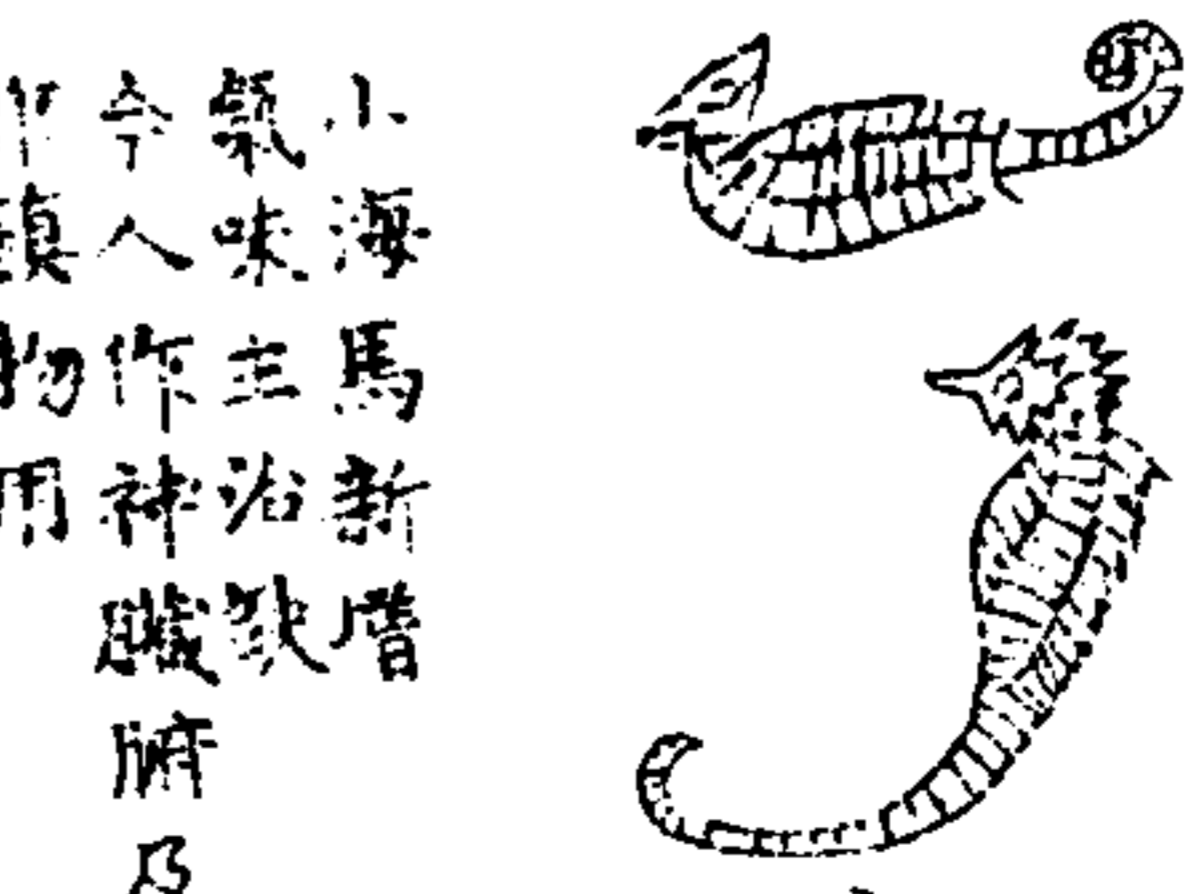 小海馬新增
氣味主治缺
今人作神臟腑
鎮物用